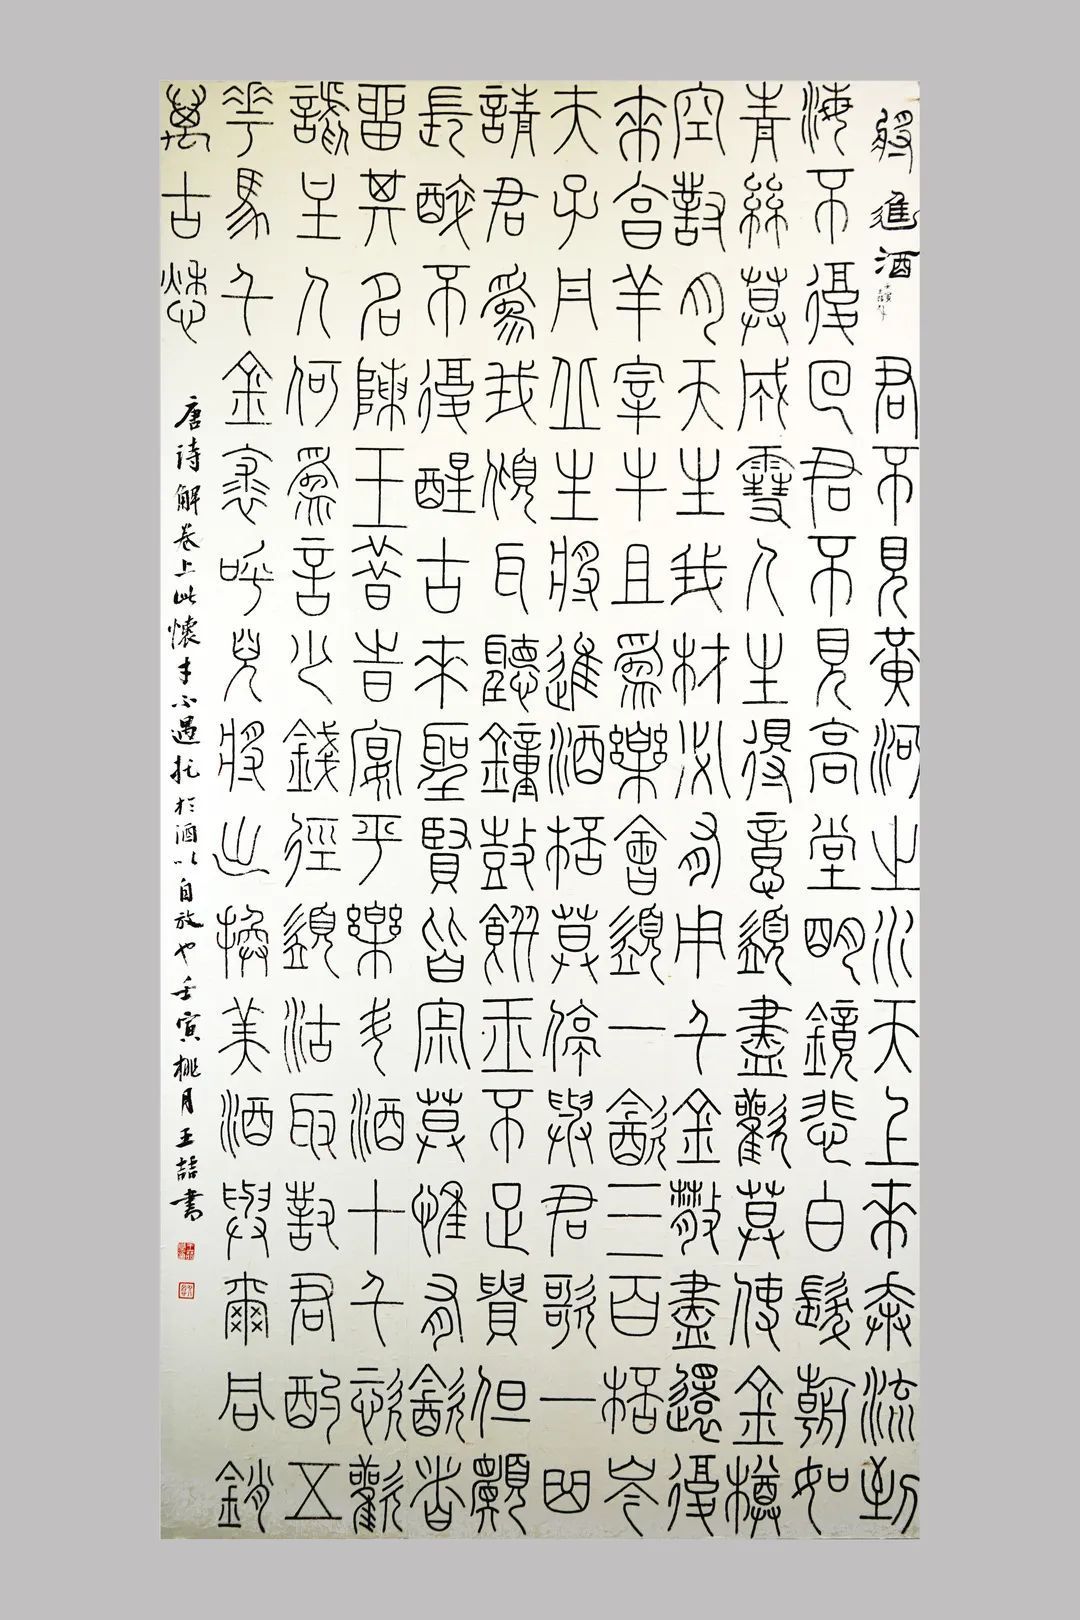 將進酒
君不見黃河之水天上來奔流到
海不復回君不見高堂明鏡悲白髮朝如
青絲莫成雪人生得意須盡歡莫使金樽
空對月天生我材必有用千金散盡還復
來烹羊宰牛且為樂會須一飲三百杯岑
夫子丹丘生將進酒杯莫停與君歌一曲
請君為我傾耳聽鐘鼓饌玉不足貴但願
長醉不復醒古來聖賢皆寂莫惟有飲者
留其名陳王昔時宴平樂斗酒十千恣歡
謔主人何為言少錢徑須沽取對君酌五
花馬千金裘呼兒將出換美酒與爾同銷
萬古愁
唐詩解卷上此懷才不遇托於酒以自放也壬寅桃月王喆書